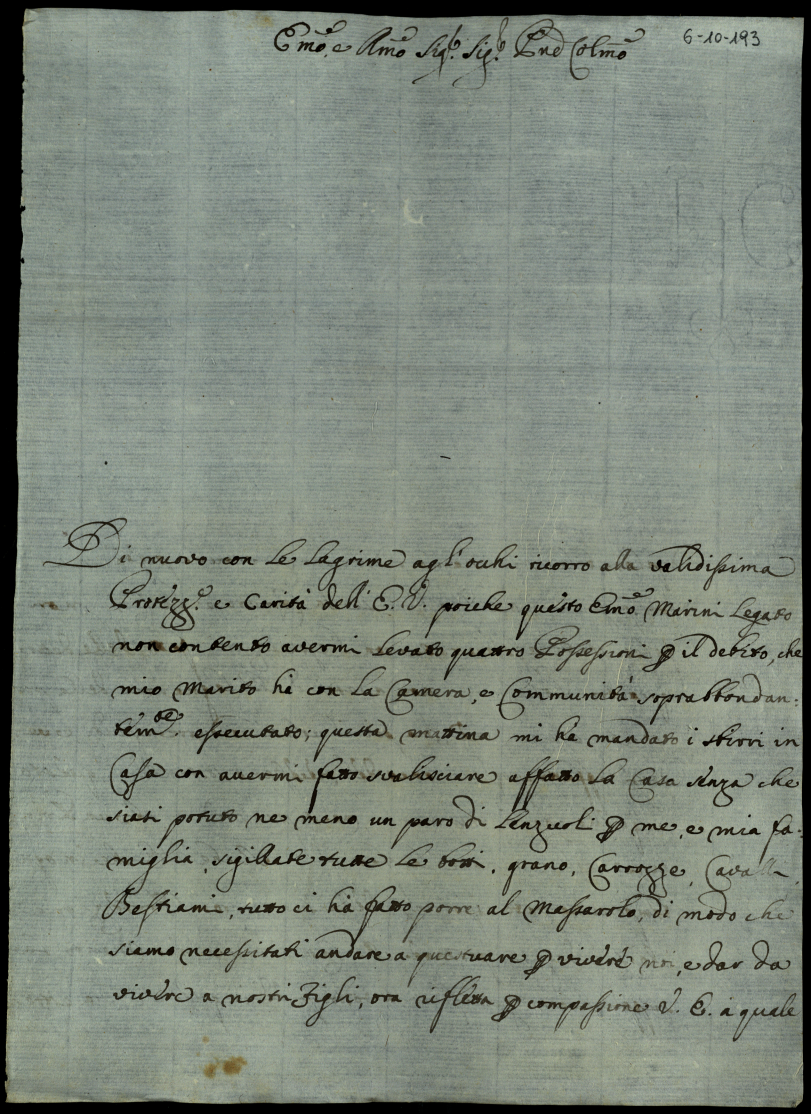 Emo, e Rmo Sigr. Sigr. Prne Colmo
6-10-193
Di nuovo con le lagrime agl'occhi ricorro alla validissima
Protezze. e Carità dell'E. V. poiche questo Emo. Marini Legato
non contento avermi levato quattro Possessioni p il debito, che
mio Marito hà con la Camera, e Communità soprabbondan:
temte. essecutato; questa mattina mi hà mandato i sbirri in
Casa con avermi fatto svalisciare affatto la Casa senza che
siasi potuto ne meno un paro di lenzuoli p me, e mia fa:
miglia, sigillate tutte le botti, grano, Carrozze, Cavalli,
Bestiami, tutto ci hà fatto porre al Massarolo, di modo che
siamo necessitati andare a questuare p vivere noi, e dar da
vivere a nostri Figli, ora rifletta p compassione V. E. à quale